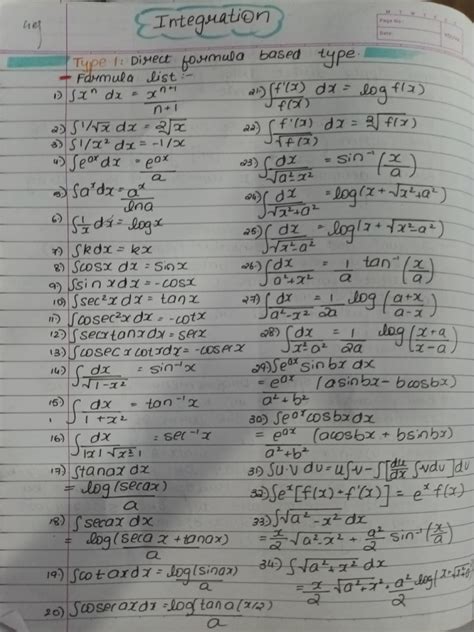 Integration
Type 1: Direct formula based type.
- Formula list :-
1) ∫xⁿ dx = xⁿ⁺¹/n+1
2) ∫1/√x dx = 2√x
3) ∫1/x² dx = -1/x
4) ∫eax dx = eax/a
5) ∫aˣ dx = aˣ/lna
6) ∫1/x dx = logx
7) ∫kdx = kx
8) ∫cosx dx = sinx
9) ∫sin x dx = -cosx
10) ∫sec²x dx = tanx
11) ∫cosec²x dx = -cotx
12) ∫secxtanx dx = secx
13) ∫cosecx cotxdx = -cosecx
14) ∫dx/√1-x² = sin⁻¹x
15) ∫dx/1+x² = tan⁻¹x
16) ∫dx/|x|√x²-1 = sec⁻¹x
17) ∫tanax dx
= log(secax)/a
18) ∫secax dx
= log(secax + tanax)/a
19) ∫cotaxdx = log(sinax)/a
20) ∫cosecaxdx = log(tana(x/2)/a
21) ∫f'(x)/f(x) dx = log f(x)
22) ∫f'(x)/√f(x) dx = 2√f(x)
23) ∫dx/√a²-x² = sin⁻¹(x/a)
24) ∫dx/√x²+a² = log(x+√x²+a²)
25) ∫dx/√x²-a² = log(x+√x²-a²)
26) ∫dx/a²+x² = 1/a tan⁻¹(x/a)
27) ∫dx/a²-x² = 1/2a log(a+x/a-x)
28) ∫dx/x²-a² = 1/2a log(x-a)
29) ∫eax sinbx dx
= eax/a²+b² (asinbx - bcosbx)
30) ∫eax cosbx dx
= eax/a²+b² (acosbx + bsinbx)
31) ∫u·v dv = u∫v-∫[du/dx ∫vdu]du
32) ∫eˣ[f(x)+f'(x)] = eˣ f(x)
33) ∫√a²-x² dx
= x/2 √a²-x² + a²/2 sin⁻¹(x/a)
34) ∫√a²+x² dx
= x/2 √a²+x² + a²/2 log(x+√x²+a²